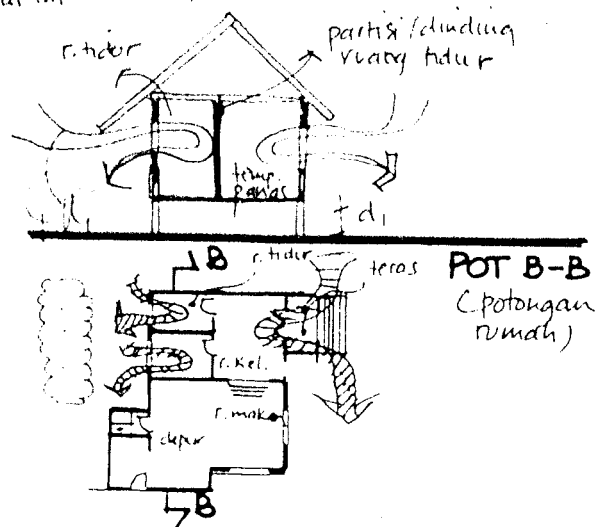 r. tidur
partisi/dinding
ruang tidur
temp.
panas
+ d1
B
r. tidur
teras
POT B-B
(potongan
rumah)
r. kel.
r. mak
dapur
B